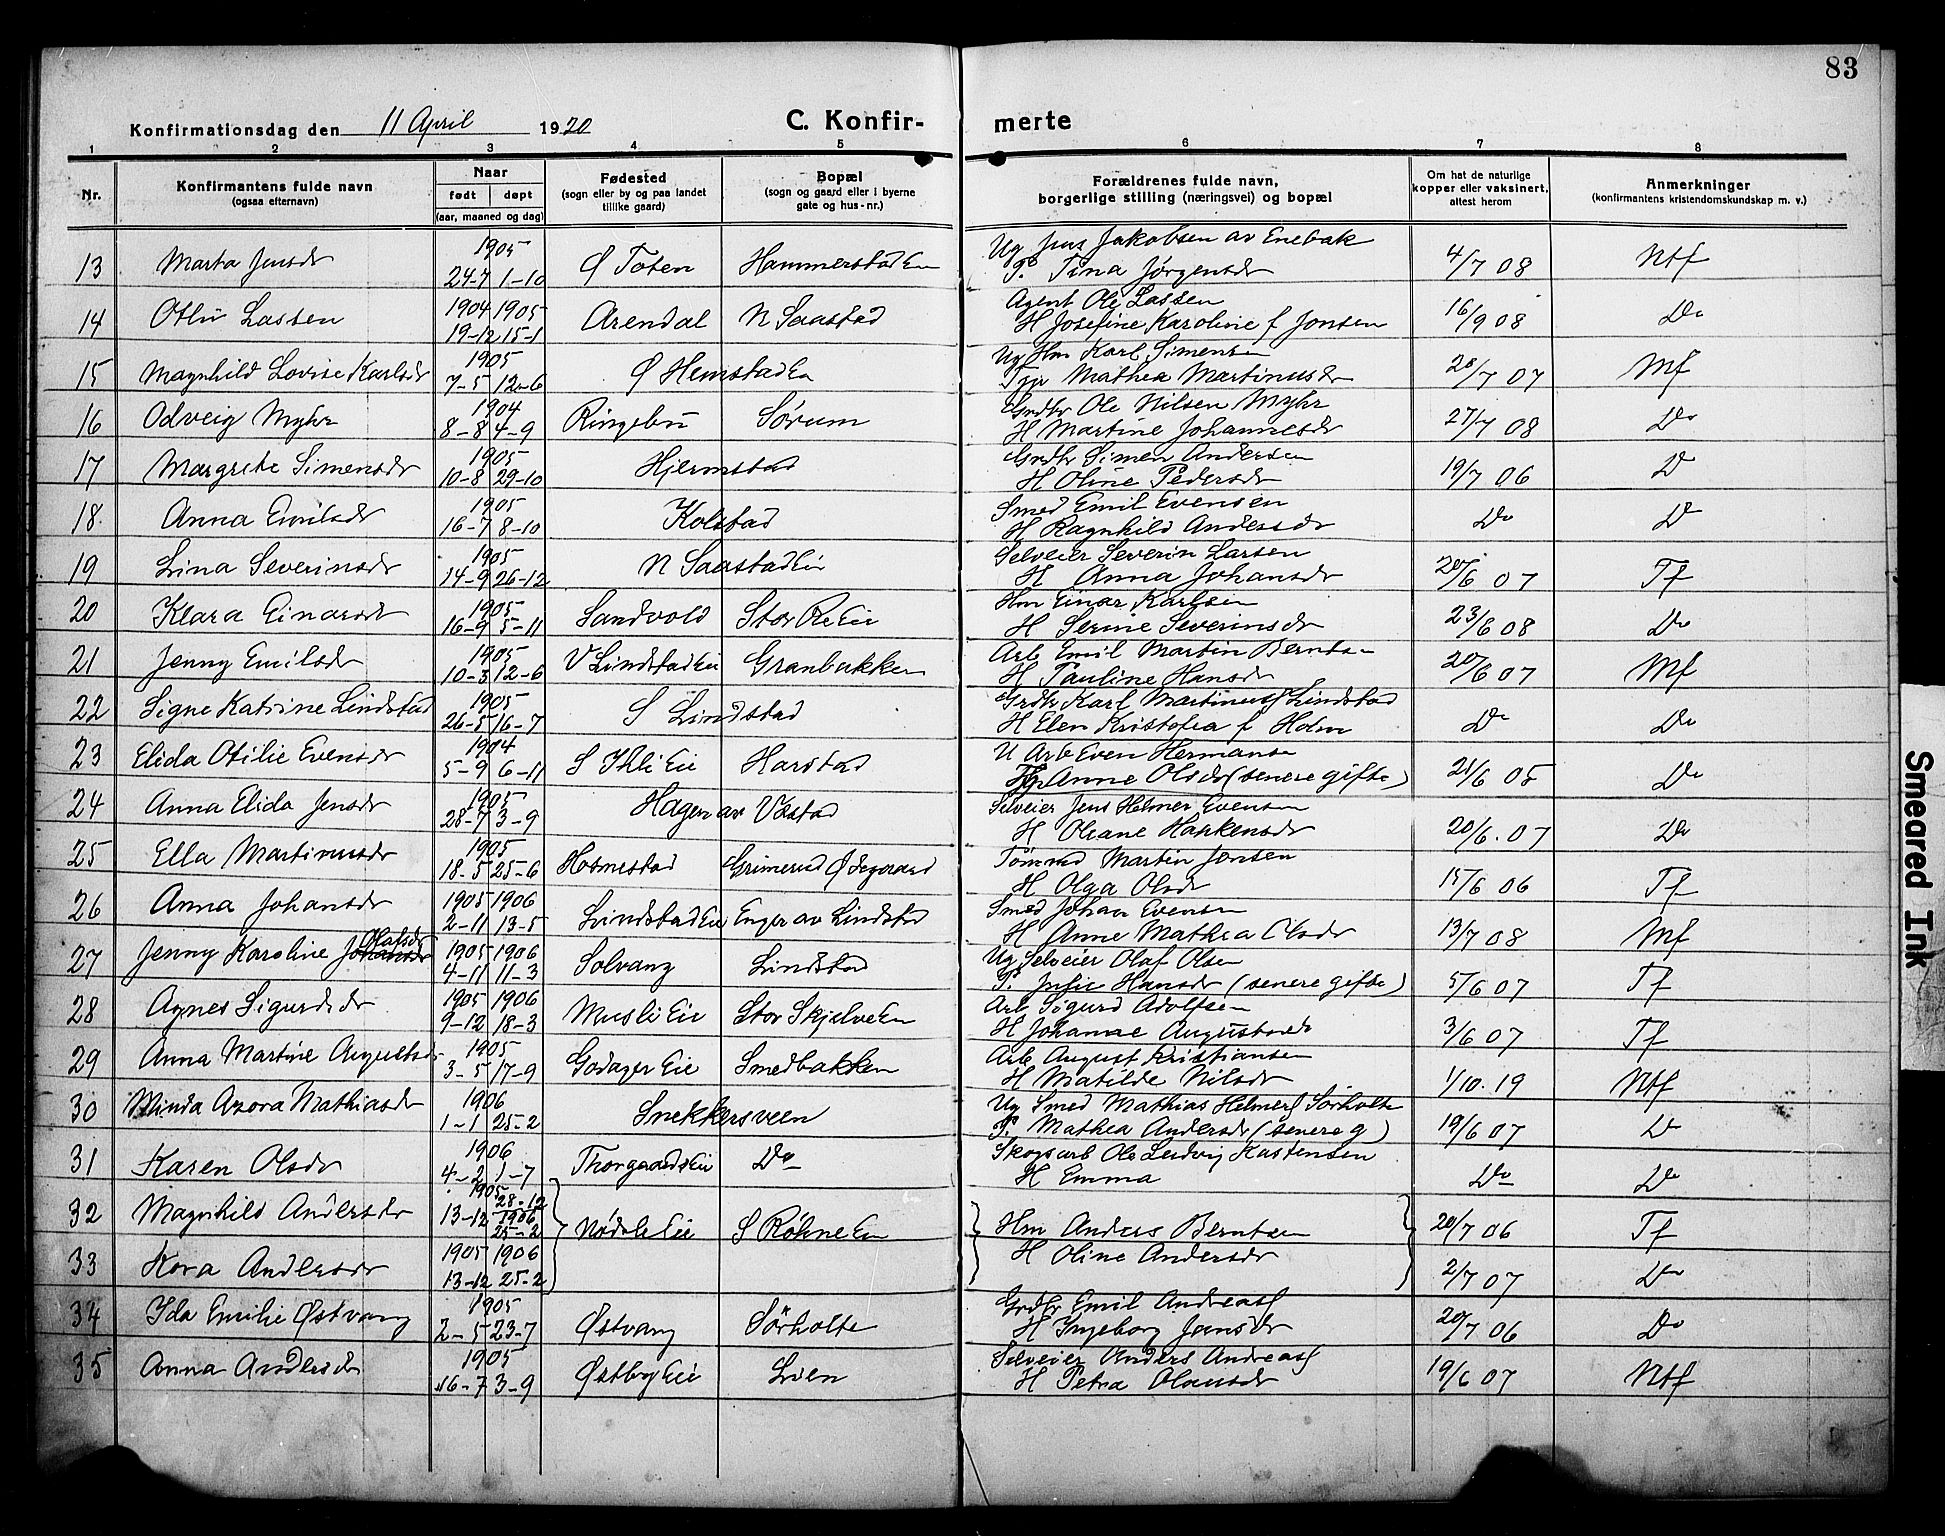 83
Konfirmationsdag den 11 April 1920 C. Konfir- merte
1 2 3 4 5 6 7 8
Nr. Konfirmantens fulde navn (ogsaa efternavn) Naar født døpt (aar, maaned og dag) Fødested (sogn eller by og paa landet tillike gaard) Bopæl (sogn og gaard eller i byerne gate og hus-nr.) Forældrenes fulde navn, borgerlige stilling (næringsvei) og bopæl Om hat de naturlige kopper eller vaksinert, attest herom Anmerkninger (konfirmantens kristendomskundskap m. v.)
1905 Ug Jens Jakobsen av Enebak
13 Marta Jensdr 24-7 1-10 Ø Toten Hammerstad En P. Tina Jørgensdr 4/7 08 Ntf
1904 1905 Agent Ole Lassen
14 Otliv Lassen 19-12 15-1 Arendal N Saastad H Josefine Karoline f Jonsen 16/9 08 Do
1905 Ug Hm Karl Simensen
15 Magnhild Lovise Karlsdr 7-5 12-6 Ø Hemstad En Pige Mathea Martinusdr 28/7 07 Mf
1904 Grdbr Ole Nilsen Myhr
16 Odveig Myhr 8-8 4-9 Ringebu Sörum H Martine Johannesdr 27/7 08 Do
1905 Grdbr Simen Andersen
17 Margrete Simensdr 10-8 29-10 Hjermstad H Oline Pedersdr 19/7 06 Do
1905 Smed Emil Evensen
18. Anna Emilsdr 16-7 8-10 Kolstad H Ragnhild Andersdr Do Do
1905 Selveier Severin Larsen
19 Lina Severinsdr 14-9 26-12 N Saastad Eie H Anna Johansdr 20/6 07 Tf
1905 Hm Einar Karlsen
20 Klara Einarsdr 16-9 5-11 Sandvold Stor Re Eie H Serine Severinsdr 23/6 08 Do
1905 Arb Emil Martin Berntsen
21 Jenny Emilsdr 10-3 12-6 V Lindstad Eie Granbakken H Pauline Hansdr 20/6 07 Mf
1905 Grdbr Karl Martinus Lindstad
22 Signe Katrine Lindstad 26-5 16-7 S Lindstad H Elen Kristofea f Holm Do Do
1904 U Arb Even Hermanse
23 Elida Otilie Evensdr 5-9 6-11 S Ihli Eie Harstad Pg Anne Olsdr (senere gifte) 21/6 05 Do
1905 Selveier Jens Helmer Evensen
24 Anna Elida Jensdr 28-7 3-9 Hagen av Vestad H Oleane Haakensdr 20/6. 07 Do
1905 Tømmd Martin Jensen
25 Ella Martinusdr 18-5 25-6 Holmestad Grimerud Ødegaard H Olga Olsdr 15/6 06 Tf
1905 1906 Smed Johan Evensen
26 Anna Johansdr 2-11 13-5 Lindstad Eie Enger av Lindstad H Anne Mathea Olsdr 13/7 08 Mf
Olafsdr 1905 1906 Ug Selveier Olaf Olsen
27 Jenny Karoline Johansdr 4-11 11-3 Solvang Lindstad P. Julie Hansdr (senere gifte) 5/6 07 Tf
1905 1906 Arb Sigurd Adolfsen
28 Agnes Sigurdsdr 9-12 18-3 Musli Eie Stor Skjelve En H Johanne Augustsdr 3/6 07 Tf
1905 Arb August Kristiansen
29 Anna Martine Augustsdr 3-5 17-9 Godager Eie Smedbakken H Matilde Nilsdr 1/10. 19 Ntf
1906 Ug Smed Mathias Helmer Sørholte
30 Minda Azora Mathiasdr 1-1 25-2 Snekkersveen P. Mathea Andersdr (senere g) 19/6 07 Do
1906 Skogsarb Ole Ludvig Kastensen
31 Karen Olsdr 4-2 1-7 Thorgaards Eie Do H Emma Do Do
1905 28-12 1906
32 Magnhild Andersdr 13-12 25-2 Nødsle Eie S Røhne En Hm Anders Berntsen 20/7 06 Tf
1905 1906 H Oline Andersdr
33 Kora Andersdr 13-12 25-2 2/7 07 Do
1905 Grdbr Emil Andreass
34 Ida Emilie Østvang 2-5 23-7 Østvang Sørholte H Ingeborg Jensdr 20/7 06 Do
1905 Selveier Anders Andreass
35 Anna Andersdr 16-7 3-9 Østby Eie Lien H Petra Olausdr 19/6 07 Ntf
Smeared Ink